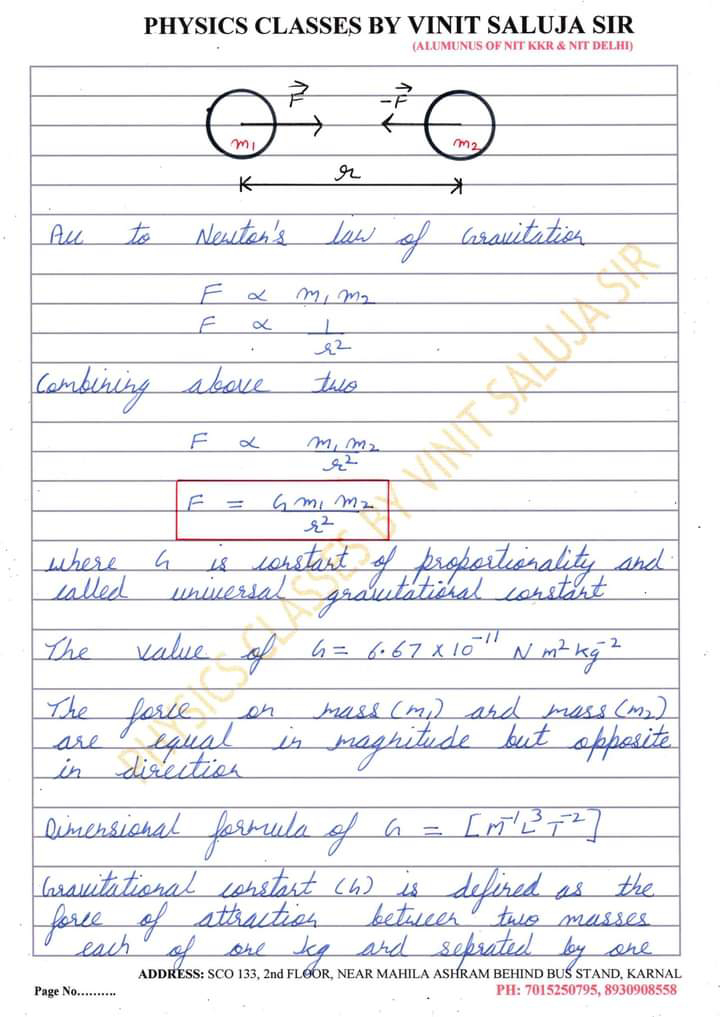 PHYSICS CLASSES BY VINIT SALUJA SIR
(ALUMUNUS OF NIT KKR & NIT DELHI)
F⃗ -F⃗
m₁ m₂
r
Acc to Newton's law of Gravitation
F ∝ m₁ m₂
F ∝ 1/r²
Combining above two
F ∝ m₁ m₂/r²
F = G m₁ m₂/r²
where G is constant of proportionality and
called universal gravitational constant
The value of G = 6.67 x 10⁻¹¹ N m² kg⁻²
The force on mass (m₁) and mass (m₂)
are equal in magnitude but opposite
in direction
Dimensional formula of G = [M⁻¹L³T⁻²]
Gravitational constant (G) is defined as the
force of attraction between two masses
each of one kg and seprated by one
PHYSICS CLASSES BY VINIT SALUJA SIR
ADDRESS: SCO 133, 2nd FLOOR, NEAR MAHILA ASHRAM BEHIND BUS STAND, KARNAL
Page No..........
PH: 7015250795, 8930908558